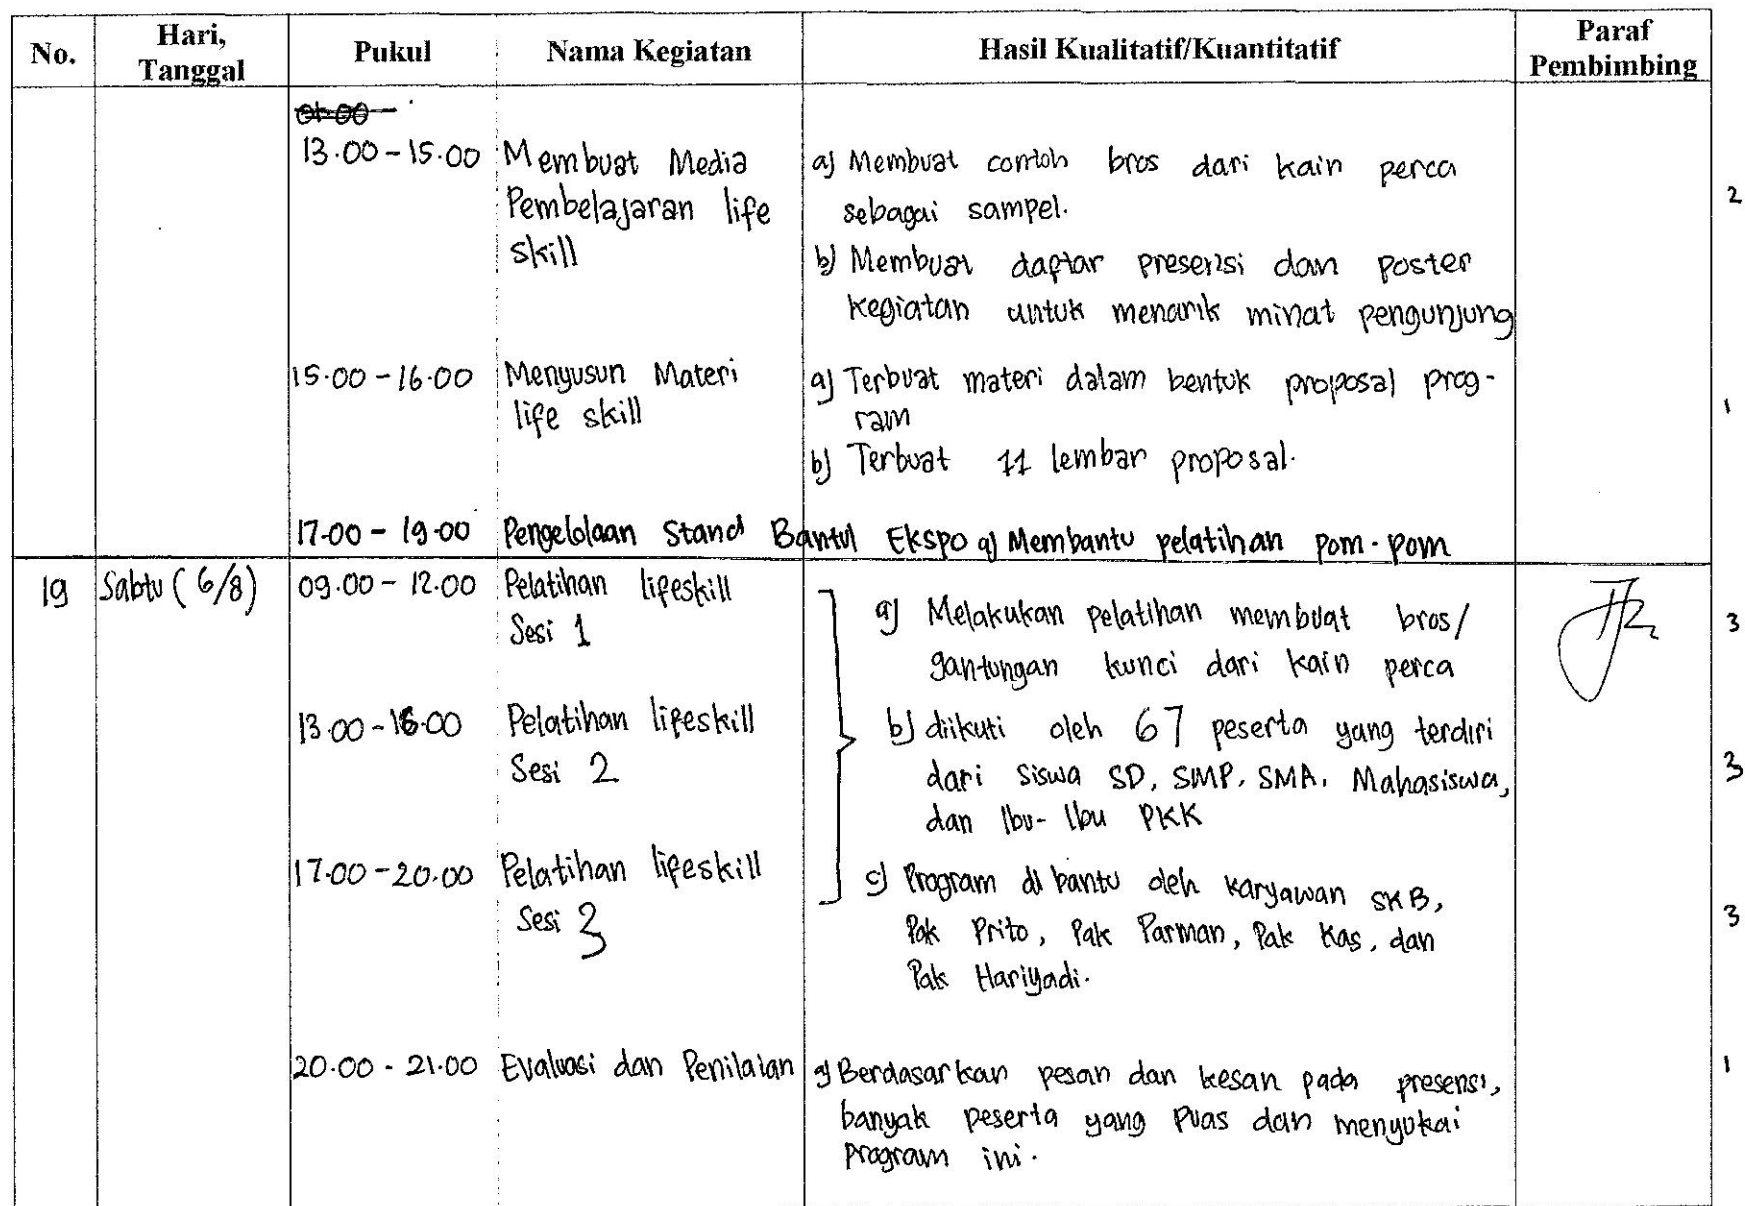 No. Hari, Tanggal Pukul Nama Kegiatan Hasil Kualitatif/Kuantitatif Paraf Pembimbing
13.00 - 15.00 Membuat Media Pembelajaran life skill
a) Membuat contoh bros dari kain perca
sebagai sampel.
b) Membuat daftar presensi dan poster
kegiatan untuk menarik minat pengunjung
2
15.00 - 16.00 Menyusun Materi life skill
a) Terbuat materi dalam bentuk proposal prog-
ram
b) Terbuat 11 lembar proposal.
1
17.00 - 19.00 Pengelolaan Stand Bantul Ekspo a) Membantu pelatihan pom-pom
19 Sabtu (6/8) 09.00 - 12.00 Pelatihan lifeskill
Sesi 1
3
13.00 - 16.00 Pelatihan lifeskill
Sesi 2
3
17.00 - 20.00 Pelatihan lifeskill
Sesi 3
3
a) Melakukan pelatihan membuat bros/
gantungan kunci dari kain perca
b) diikuti oleh 67 peserta yang terdiri
dari siswa SD, SMP, SMA, Mahasiswa,
dan Ibu-Ibu PKK
c) Program di bantu oleh karyawan SKB,
Pak Prito, Pak Parman, Pak Kas, dan
Pak Hariyadi.
20.00 - 21.00 Evaluasi dan Penilaian
a) Berdasarkan pesan dan kesan pada presensi,
banyak peserta yang puas dan menyukai
program ini.
1